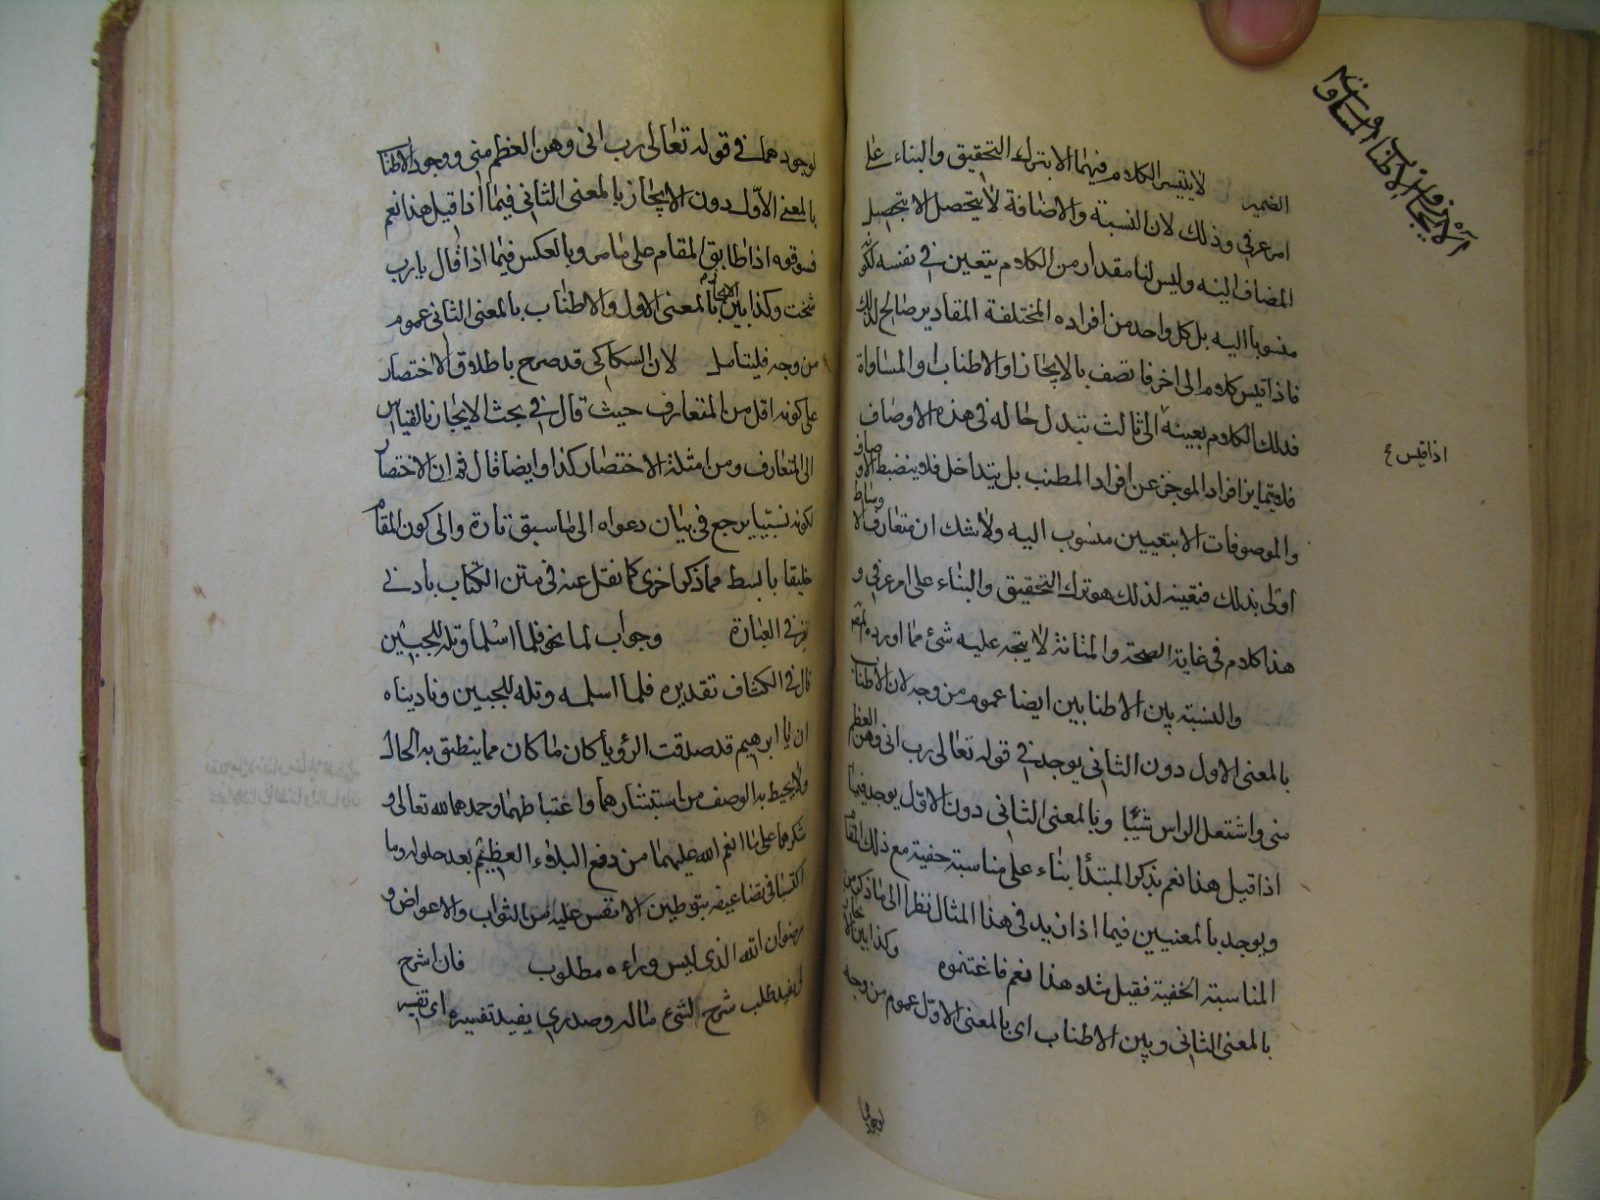 الايجاز والاطناب والمساواة
الضمير لا يتيسر الكلام فيهما الا بترك التحقيق والبناء على
امر عرفي وذلك لان النسبة والاضافة لا يتحصل الا بتحصيل
المضاف اليه وليس لنا مقدار من الكلام يتعين في نفسه لكونه
منسوبا اليه بل كل واحد من افراده المختلفة المقادير صالح لذلك
فاذا قيس كلام الى اخر فاتصف بالايجاز او الاطناب او المساواة
فذلك الكلام بعينه الى ثالث تبدل حاله في هذه الاوصاف
اذا قيس
فلا يتمايز افراد الموجز عن افراد المطنب بل يتداخل فلا ينضبط الاوصاف
والموصوفات الا بتعيين منسوب اليه ولا شك ان متعارف الاوساط
اولى بذلك فتعينه لذلك هو ترك التحقيق والبناء على امر عرفي و
هذا كلام في غاية الصحة والمتانة لا يتجه عليه شئ مما اورده المص
والنسبة بين الاطنابين ايضا عموم من وجه لان الاطناب
بالمعنى الاول دون الثاني يوجد في قوله تعالى رب اني وهن العظم
مني واشتعل الراس شيبا وبالمعنى الثاني دون الاول يوجد فيما
اذا قيل هذا نعم بذكر المبتدأ بناء على مناسبة خفية مع ذلك المقام
ويوجد بالمعنيين فيما اذا زيد في هذا المثال نظرا الى ما ذكر من
المناسبة الخفية فقيل مثله هذا نعم فاغتنموه وكذا بين الايجاز
بالمعنى الثاني وبين الاطناب اي بالمعنى الاول عموم من وجه
لوجودهما
لوجودهما في قوله تعالى رب اني وهن العظم مني ووجود الاطناب
بالمعنى الاول دون الايجاز بالمعنى الثاني فيما اذا قيل هذا نعم
فسوقوه اذا طابق المقام على ما مر وبالعكس فيما اذا قال يا رب
شخت وكذا بين الايجاز بالمعنى الاول والاطناب بالمعنى الثاني عموم
من وجه فليتامل لان السكاكي قد صرح باطلاق الاختصار
على كونه اقل من المتعارف حيث قال في بحث الايجاز بالقياس
الى المتعارف ومن امثلة الاختصار كذا وايضا قال ثم ان الاختصار
لكونه نسبيا يرجع في بيان دعواه الى ما سبق تارة والى كون المقام
خليقا بابسط مما ذكر اخرى كما نقل عنه في متن الكتاب بادنى
تغير في العبارة وجواب لما نحو فلما اسلما وتله للجبين
قال في الكشاف تقديره فلما اسلما وتله للجبين وناديناه
ان يا ابرهيم قد صدقت الرؤيا كان ما كان مما ينطق به الحال
ولا يحيط به الوصف من استبشارهما واغتباطهما وحمدهما لله تعالى و
شكرهما على ما انعم الله عليهما من دفع البلاء العظيم بعد حلوله وما
اكتسبا في تضاعيفه بتوطين الانفس عليه من الثواب والاعواض و
رضوان الله الذي ليس وراءه مطلوب فان اشرح
لي يفيد طلب شرح الشئ ما له وصدري يفيد تفسيره اي تفسير